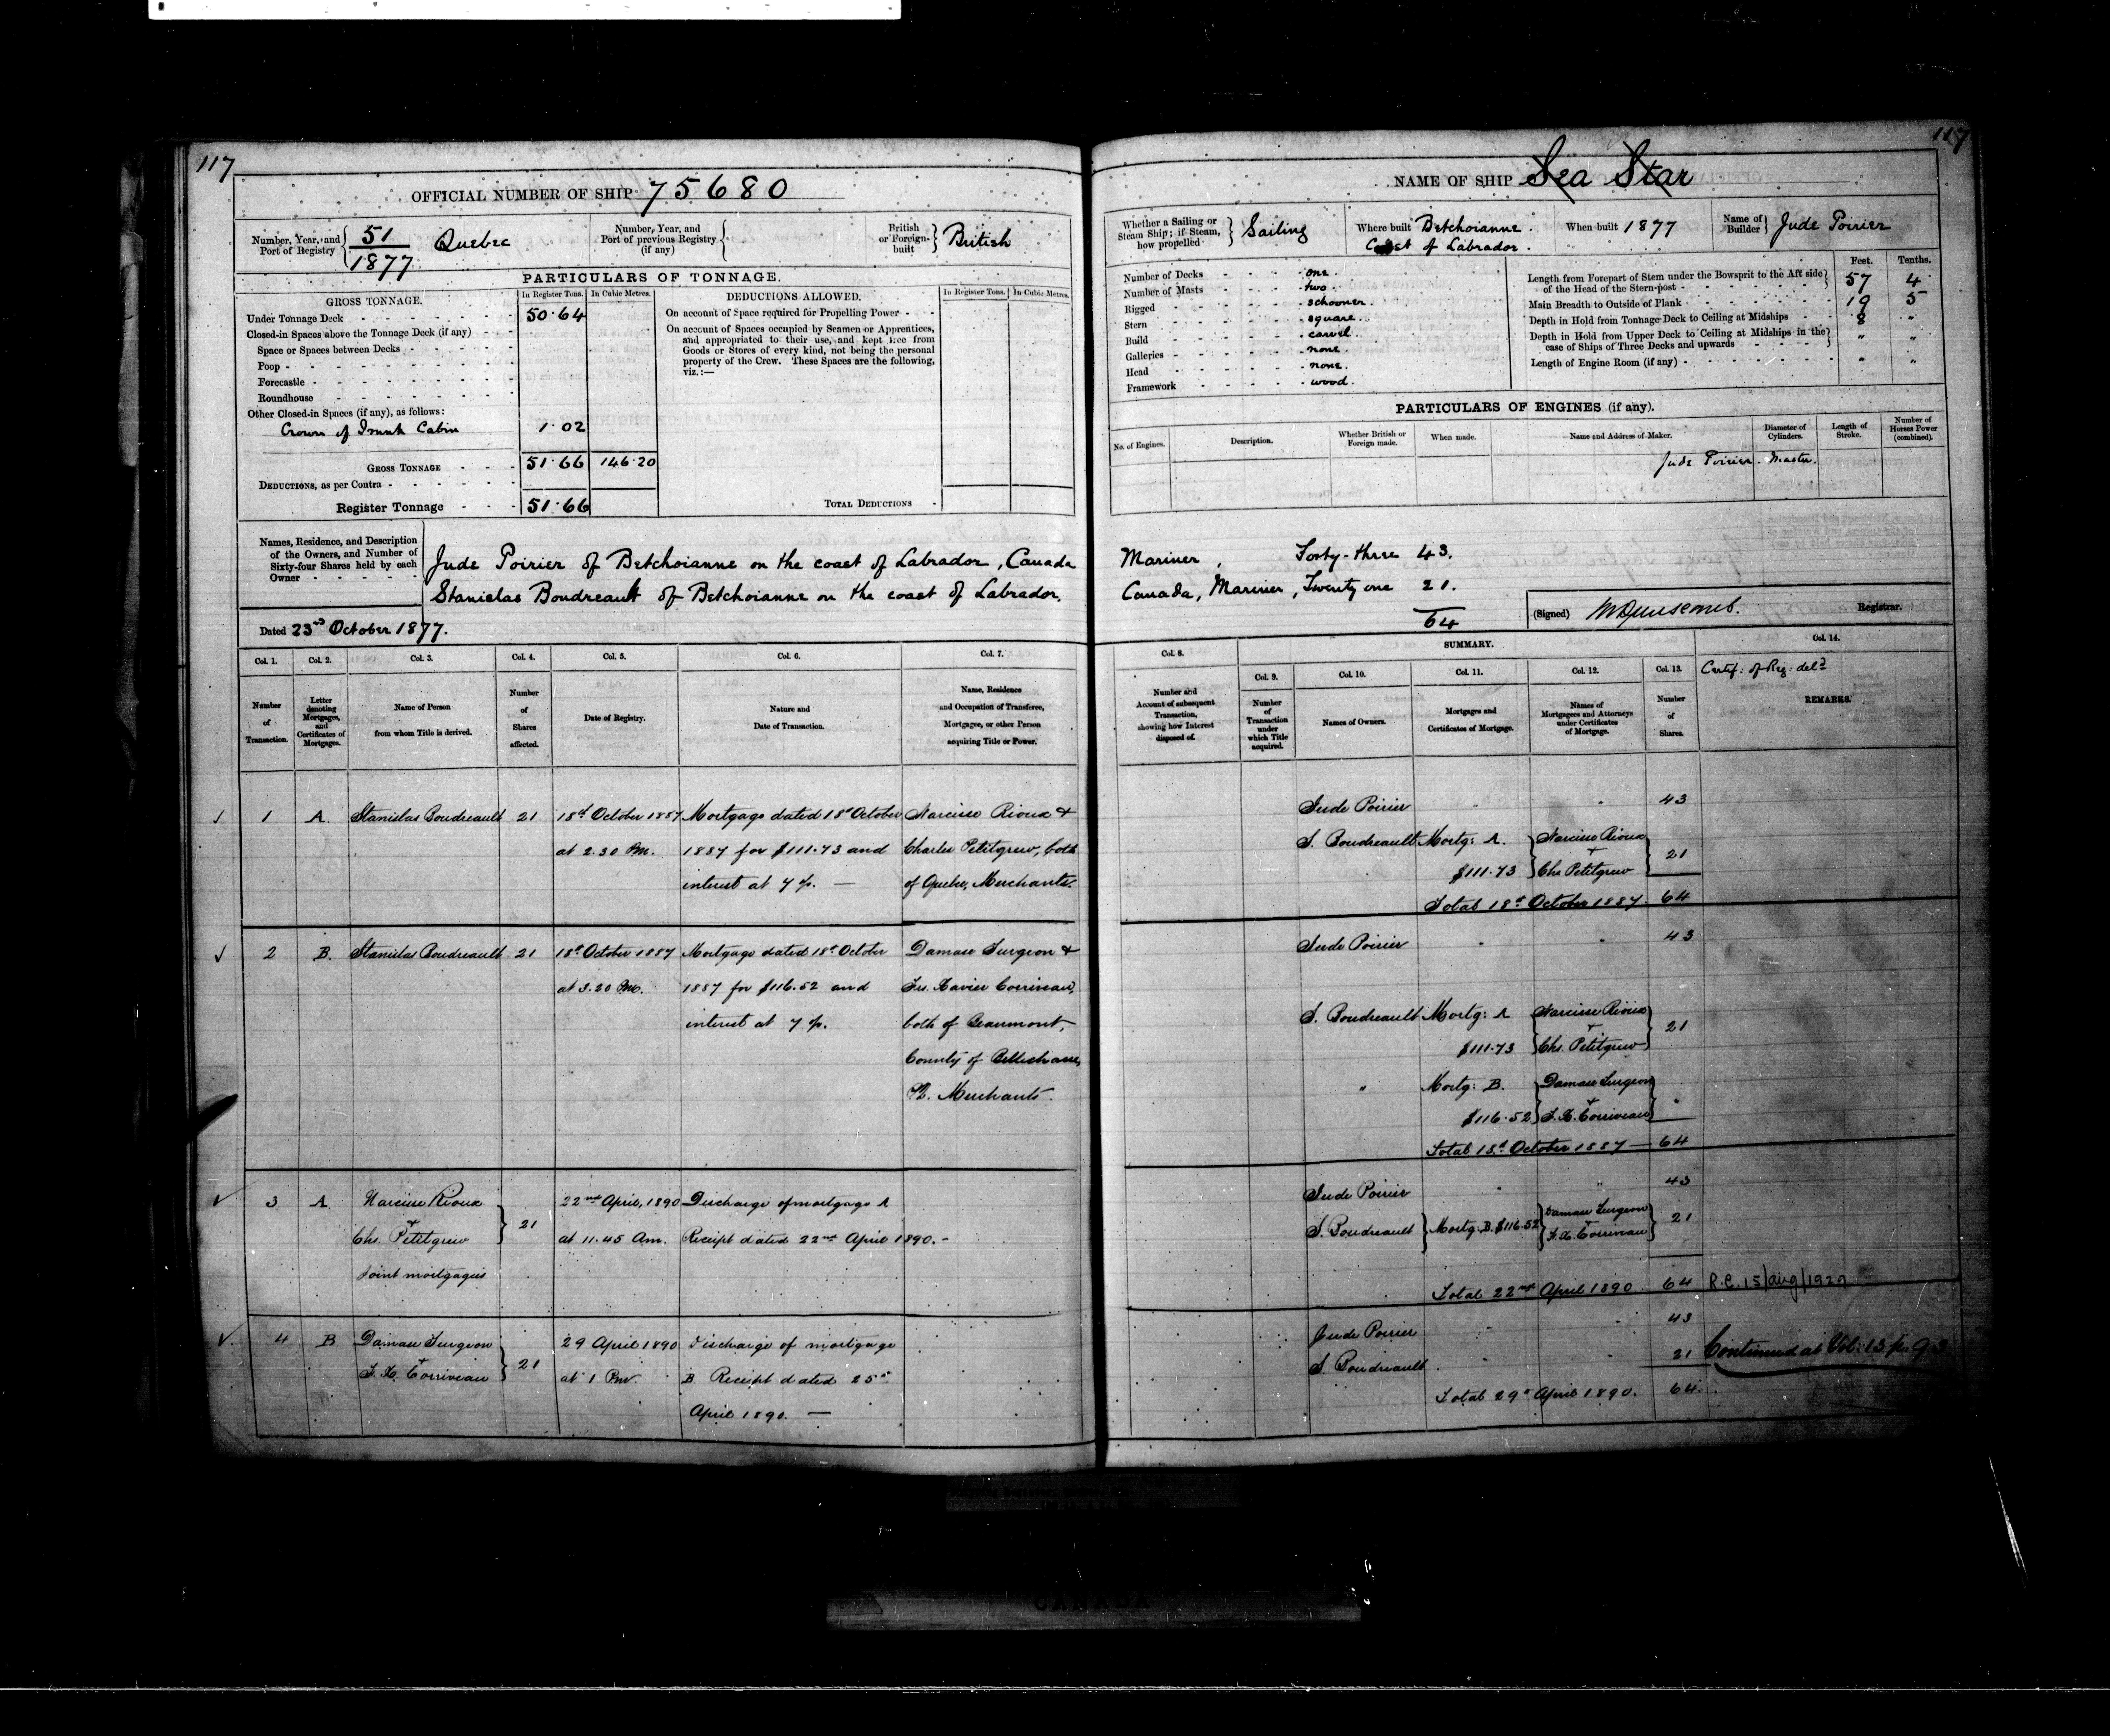 117
OFFICIAL NUMBER OF SHIP 75680
Number, Year, and Port of Registry 51/1877 Quebec
Number, Year, and Port of previous Registry (if any)
British or Foreign-built British
PARTICULARS OF TONNAGE.
GROSS TONNAGE. In Register Tons. In Cubic Metres.
Under Tonnage Deck 50.64
Closed-in Spaces above the Tonnage Deck (if any)
Space or Spaces between Decks
Poop
Forecastle
Roundhouse
Other Closed-in Spaces (if any), as follows:
Crown of Trunk Cabin 1.02
GROSS TONNAGE 51.66 146.20
DEDUCTIONS, as per Contra
Register Tonnage 51.66
DEDUCTIONS ALLOWED. In Register Tons. In Cubic Metres.
On account of Space required for Propelling Power
On account of Spaces occupied by Seamen or Apprentices,
and appropriated to their use, and kept free from
Goods or Stores of every kind, not being the personal
property of the Crew. These Spaces are the following,
viz.:—
TOTAL DEDUCTIONS
117
NAME OF SHIP Sea Star
Whether a Sailing or Steam Ship; if Steam, how propelled Sailing
Where built Betchoianne. Coast of Labrador.
When built 1877
Name of Builder Jude Poirier
Number of Decks one.
Number of Masts two.
Rigged schooner.
Stern square.
Build carvel.
Galleries none.
Head none.
Framework wood.
Feet. Tenths.
Length from Forepart of Stem under the Bowsprit to the Aft side of the Head of the Stern-post 57 4
Main Breadth to Outside of Plank 19 5
Depth in Hold from Tonnage Deck to Ceiling at Midships 8 "
Depth in Hold from Upper Deck to Ceiling at Midships in the case of Ships of Three Decks and upwards " "
Length of Engine Room (if any) " "
PARTICULARS OF ENGINES (if any).
No. of Engines. Description. Whether British or Foreign made. When made. Name and Address of Maker. Diameter of Cylinders. Length of Stroke. Number of Horses Power (combined).
Jude Poirier. Master.
Names, Residence, and Description
of the Owners, and Number of
Sixty-four Shares held by each
Owner
Jude Poirier of Betchoianne on the coast of Labrador, Canada Mariner, Forty-three 43.
Stanislas Boudreault of Betchoianne on the coast of Labrador, Canada, Mariner, Twenty one 21.
64
Dated 23rd October 1877.
(Signed) WDunscomb. Registrar.
Col. 1. Col. 2. Col. 3. Col. 4. Col. 5. Col. 6. Col. 7.
Number of Transaction.
Letter denoting Mortgages, and Certificates of Mortgages.
Name of Person from whom Title is derived.
Number of Shares affected.
Date of Registry.
Nature and Date of Transaction.
Name, Residence and Occupation of Transferee, Mortgagee, or other Person acquiring Title or Power.
Col. 8. SUMMARY. Col. 14.
Col. 9. Col. 10. Col. 11. Col. 12. Col. 13.
Number and Account of subsequent Transaction, showing how Interest disposed of.
Number of Transaction under which Title acquired.
Names of Owners.
Mortgages and Certificates of Mortgage.
Names of Mortgagees and Attorneys under Certificates of Mortgage.
Number of Shares.
Certif: of Reg: deld
REMARKS.
1 A. Stanislas Boudreault 21 18th October 1887 Mortgage dated 18th October Narcisse Rioux &
at 2.30 Pm. 1887 for $111.73 and Charles Petitgrew, both
interest at 7 p. — of Quebec, Merchants.
Jude Poirier " " 43
S. Boudreault Mortg: A. Narcisse Rioux
+ 21
$111.73 Chs Petitgrew
Total 18th October 1887. 64
2 B. Stanislas Boudreault 21 18th October 1887 Mortgage dated 18th October Damase Turgeon &
at 3.20 Pm. 1887 for $116.52 and Frs. Xavier Corriveau,
interest at 7 p. both of Beaumont,
County of Bellechasse,
PQ. Merchants.
Jude Poirier " " 43
S. Boudreault Mortg: A Narcisse Rioux
+ 21
$111.73 Chs. Petitgrew
" Mortg: B. Damase Turgeon
+ "
$116.52 F. X. Corriveau
Total 18th October 1887 — 64
3 A. Narcisse Rioux 22nd April, 1890 Discharge of mortgage A
+ 21
Chs. Petitgrew at 11.45 Am. Receipt dated 22nd April 1890. -
Joint mortgagees
Jude Poirier " " 43
S. Boudreault Mortg: B. $116.52 Damase Turgeon + F. X. Corriveau 21
Total 22nd April 1890. 64 R.C. 15/aug/1929
4 B Damase Turgeon 29 April 1890 Discharge of mortgage
+ 21
F. X. Corriveau at 1 Pm. B. Receipt dated 25th
April 1890. —
Jude Poirier " " 43
S. Boudreault. " " 21 Continued at Vol: 13 p. 93.
Total 29th April 1890. 64.
CANADA